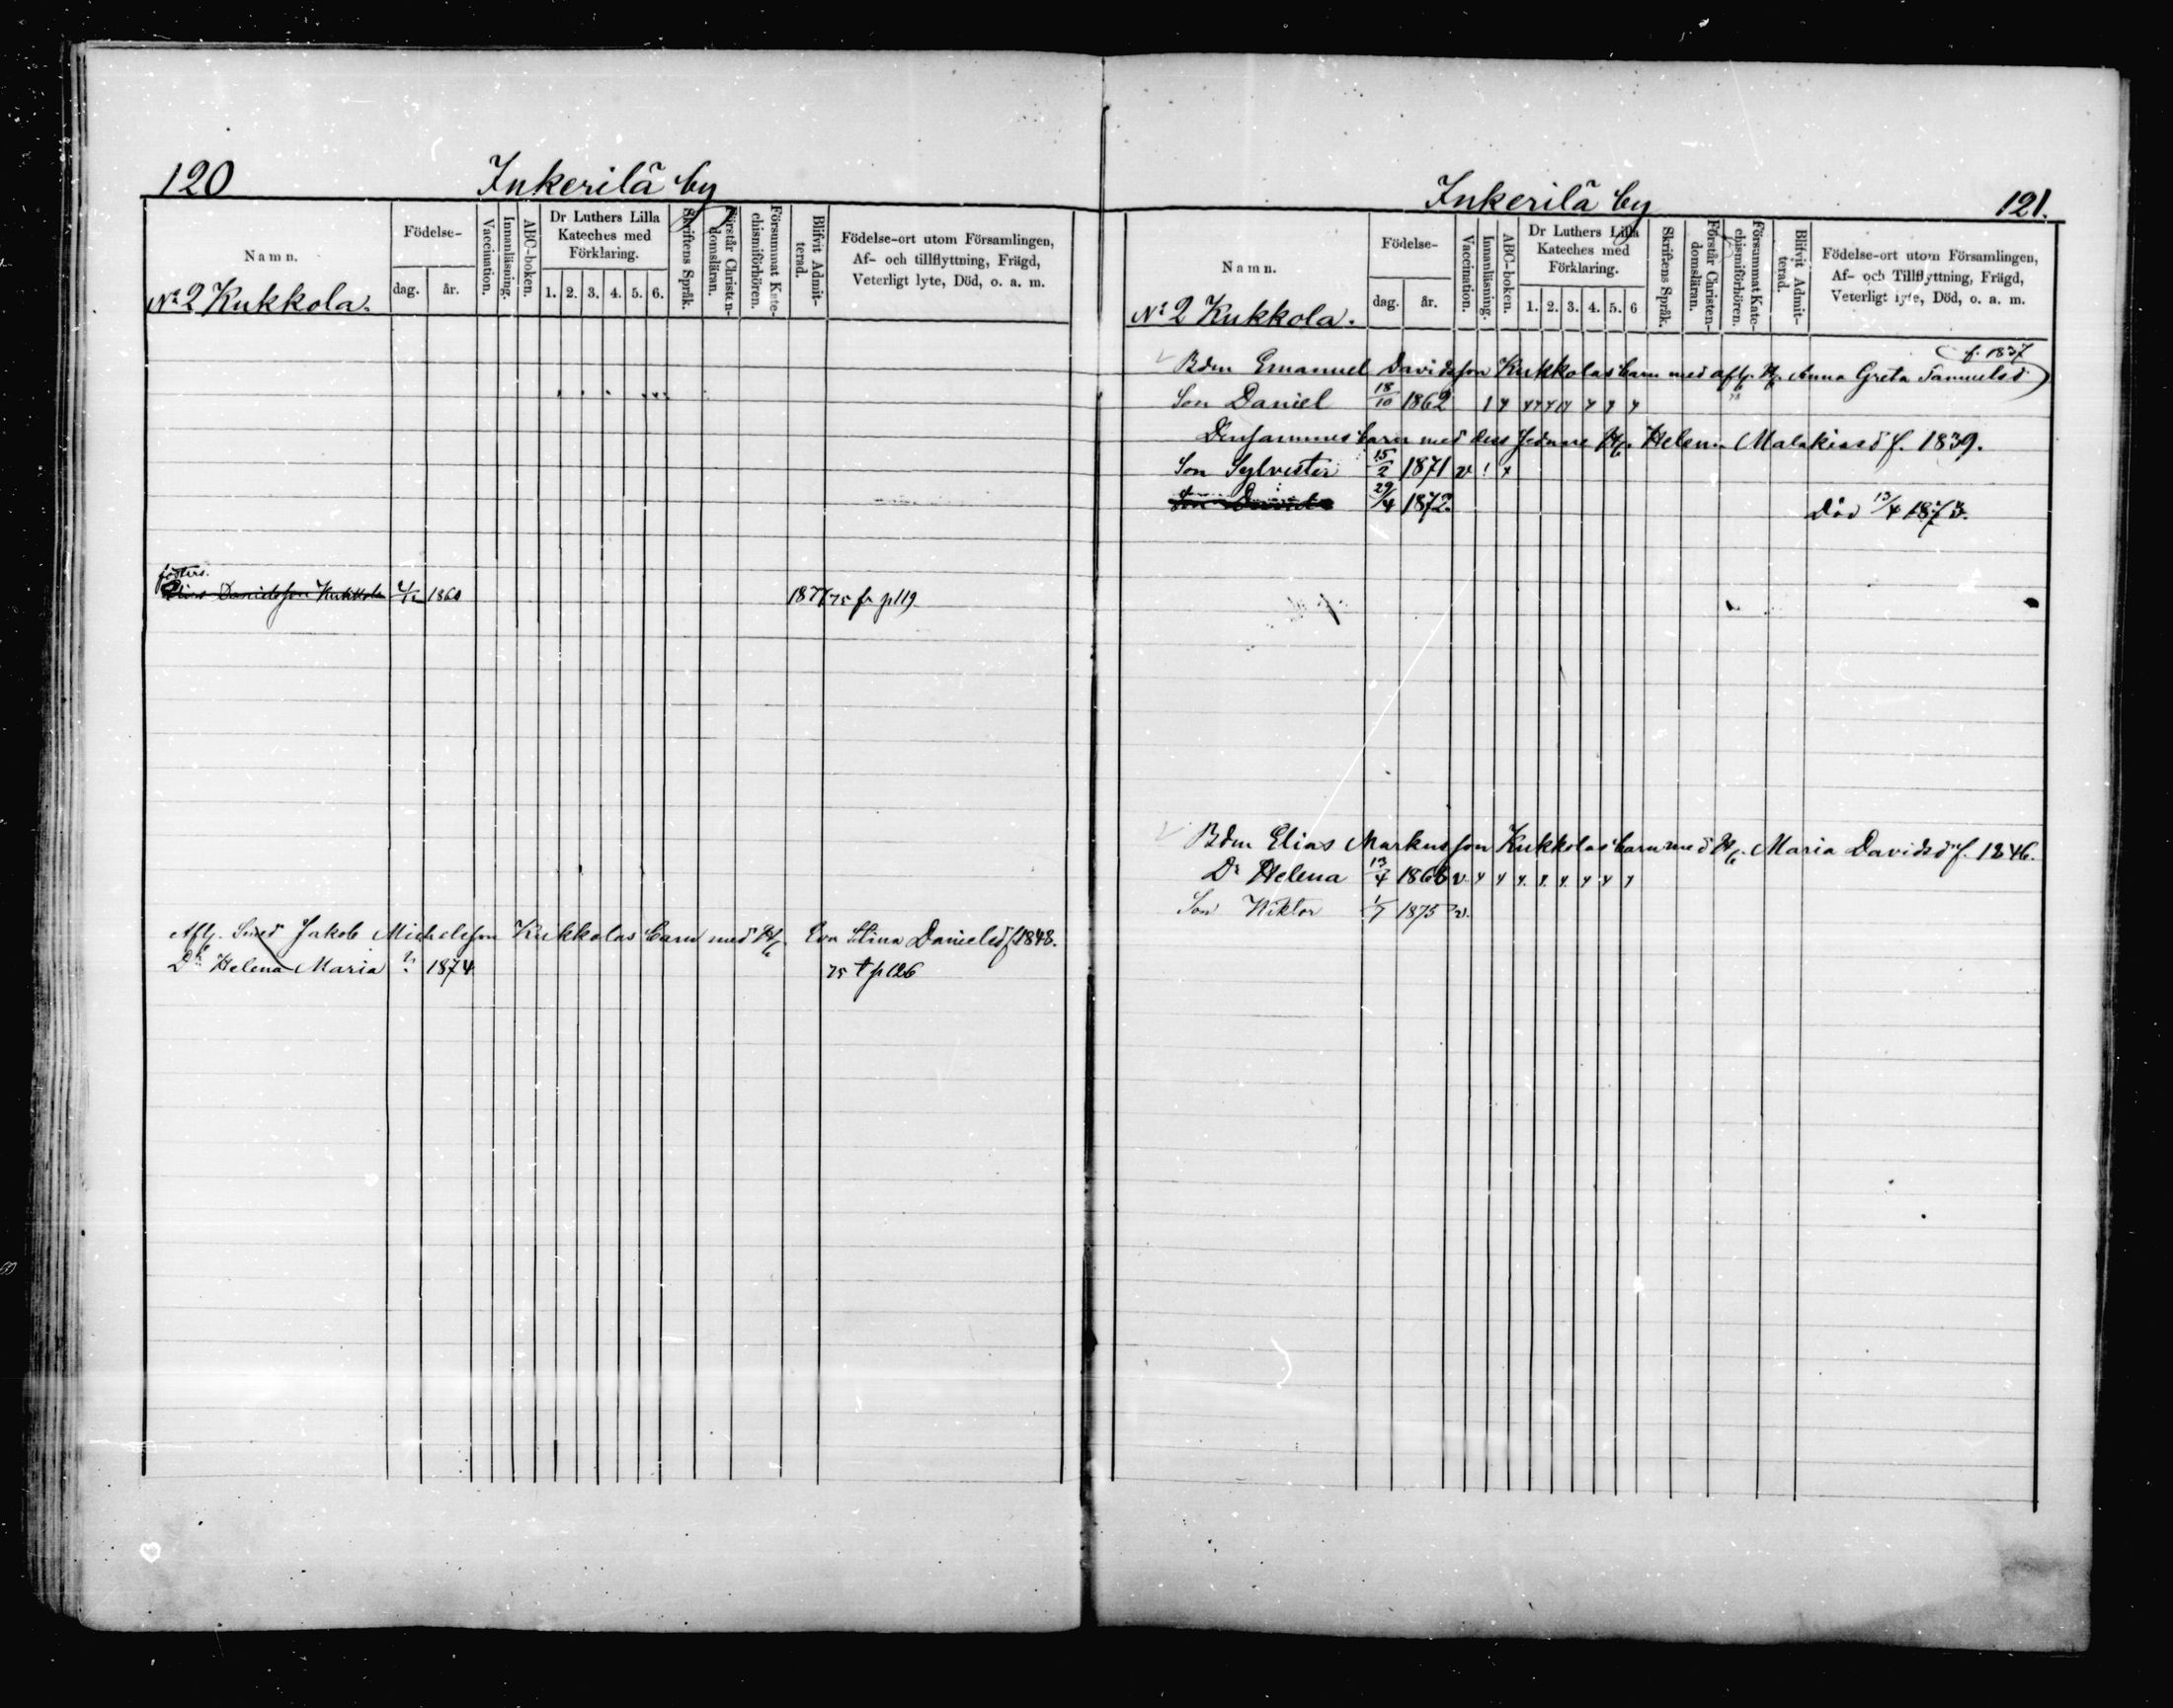 120
Inkerilä by
Namn.
Födelse-
dag.
år.
Vaccination.
Innanläsning.
ABC-boken.
Dr Luthers Lilla
Kateches med
Förklaring.
1. 2. 3. 4. 5. 6.
Skriftens Språk.
Förstår Christen-
domsläran.
Försummat Kate-
chismiförhören.
Blifvit Admit-
terad.
Födelse-ort utom Församlingen,
Af- och tillflyttning, Frägd,
Veterligt lyte, Död, o. a. m.
No 2 Kukkola.
fosters.
Elias Davidsson Kukkola 1860 1877 75 fr p 119
Afl. Jakob Michelsson Kukkolas barn med H. Eva Stina Danielsd f 1848.
Dr Helena Maria 1874 75 t p 126
Inkerilä by
121.
Namn.
Födelse-
dag.
år.
Vaccination.
Innanläsning.
ABC-boken.
Dr Luthers Lilla
Kateches med
Förklaring.
1. 2. 3. 4. 5. 6
Skriftens Språk.
Förstår Christen-
domsläran.
Försummat Kate-
chismiförhören.
Blifvit Admit-
terad.
Födelse-ort utom Församlingen,
Af- och Tillflyttning, Frägd,
Veterligt lyte, Död, o. a. m.
No 2 Kukkola.
f. 1837
Bdm Emanuel Davidsson Kukkolas barn med afl. H. Anna Greta Samuelsd)
Son Daniel 18/10 1862
Densammes barn med dess sednare H. Helena Malakiasd f. 1839.
Son Sylvester 15/2 1871 v
29/4 1872. Död 13/4 1873.
Bdm Elias Markusson Kukkolas barn med H. Maria Davidsd f. 1846.
Dr Helena 13/4 1866 v
Son Wiktor 1/7 1875 v.